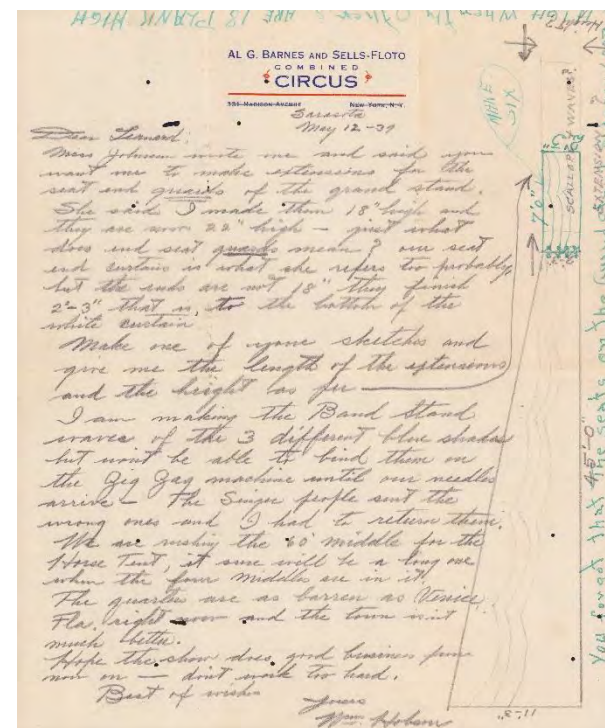 AL G. BARNES AND SELLS-FLOTO
COMBINED
CIRCUS
331 MADISON AVENUE NEW YORK, N.Y.
Sarasota
May 12-39
Dear Lenard:
Miss Johnson wrote me and said you
want me to make extensions for the
seat end guards of the grand stand.
She said I made them 18" high and
they are now 22" high — just what
does end seat guards mean? our seat
end curtain is what she refers too probably,
but the ends are not 18" they finish
2'-3" that is, to the bottom of the
white curtain
Make one of youre sketches and
give me the length of the extensions
and the height as per
I am making the Band Stand
waves of the 3 different blue shades
but wont be able to bind them on
the Zig Zag machine until our needles
arrive — The Singer people sent the
wrong ones and I had to return them.
We are rushing the 60' middle for the
Horse Tent, it sure will be a long one
when the four middles are in it
The quarters are as barren as Venice
Fla. right now and the town isn't
much better.
Hope the show does good business from
now on — dont work too hard.
Best of wishes
Yours
Wm. Hobson
MAKE
SIX
7'0"
SCALLOP WAVES?
EXTENSION?
45'-0"
You forgot that the seats on the
When the Others ARE 18 PLANK HIGH